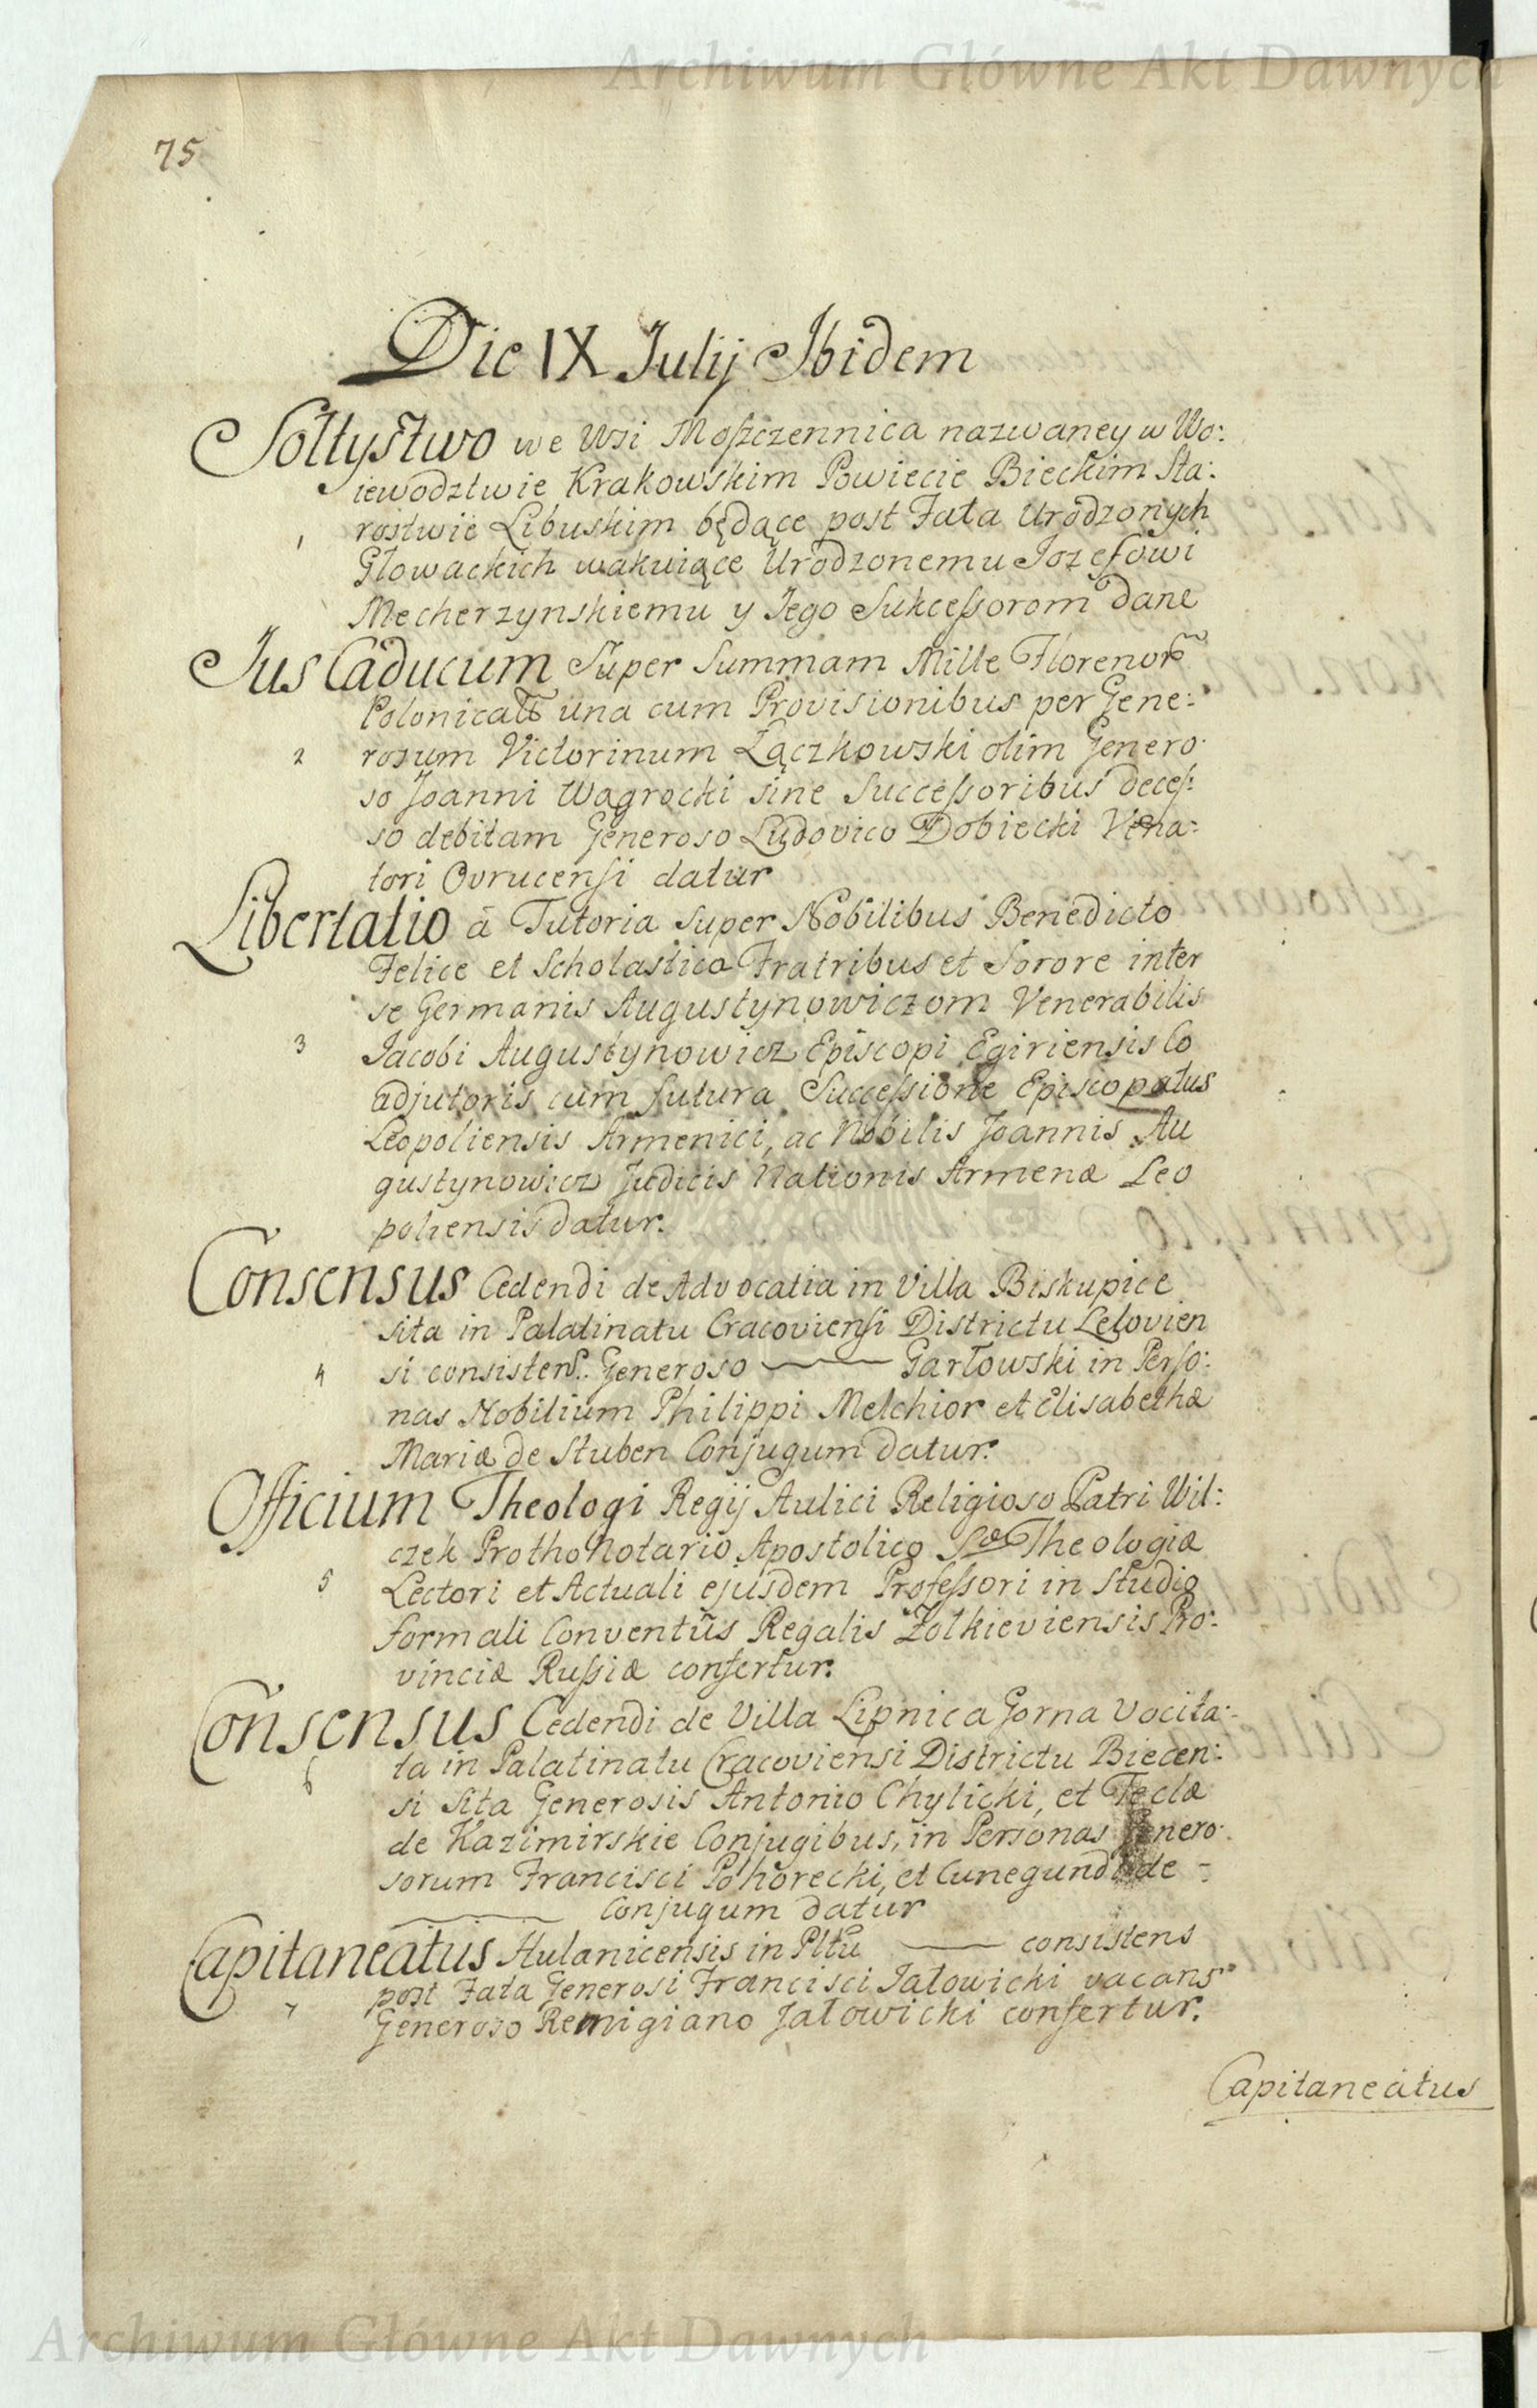 Archiwum Główne Akt Dawnych
75
Die IX Julij Ibidem
Sołtystwo we Wsi Moszczennica nazwaney w Wo:
iewodztwie Krakowskim Powiecie Bieckim Sta:
rostwie Libuskim będące post Fata Urodzonych
1
Głowackich wakuiące Urodzonemu Jozefowi
Mecherzynskiemu y Jego Sukcessorom dane
Jus Caducum Super Summam Mille Florenor
Polonical una cum Provisionibus per Gene:
2 rosum Victorinum Łączkowski olim Genero
so Joanni Wagrocki sine Successoribus deces:
so debitam Generoso Ludovico Dobiecki Vena:
tori Ovrucensi datur
Libertatio à Tutoria Super Nobilibus Benedicto
Felice et Scholastica Fratribus et Sorore inter
se Germanis Augustynowiczom Venerabilis
3 Jacobi Augustynowicz Episcopi Egiriensis Co
adjutoris cum futura Successione Episcopatus
Leopoliensis Armenici, ac Nobilis Joannis Au
gustynowicz Judicis Nationis Armenæ Leo
poliensis datur.
Consensus Cedendi de Advocatia in Villa Biskupice
sita in Palatinatu Cracoviensi Districtu Lelovien
4 si consisten. Generoso — Garłowski in Perso:
nas Nobilium Philippi Melchior et Elisabethæ
Mariæ de Stuben Conjugum datur.
Officium Theologi Regij Aulici Religioso Patri Wil:
czek ProthoNotario Apostolico Sæ Theologiæ
5 Lectori et Actuali ejusdem Professori in Studio
formali Conventûs Regalis Zołkieviensis Pro:
vinciæ Russiæ confertur.
Consensus Cedendi de Villa Lipnica Gorna vocita:
6 ta in Palatinatu Cracoviensi Districtu Biecen:
si Sita Generosis Antonio Chylicki, et Teclæ
de Kazimirskie Conjugibus, in Personas Genero
sorum Francisci Pohorecki, et Cunegundæ de -
— Conjugum datur
Capitaneatus Hulanicensis in Pltu — consistens
7 post Fata Generosi Francisci Jałowicki vacans
Generoso Remigiano Jałowicki confertur.
Capitaneatus
Archiwum Główne Akt Dawnych